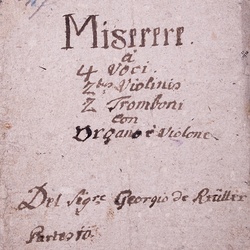 Miserere.
à
4 Voci.
2bus Violinis
2 Tromboni
con
Organo è Violone.
Del Sigre Georgio de Reütter
Partes 10.